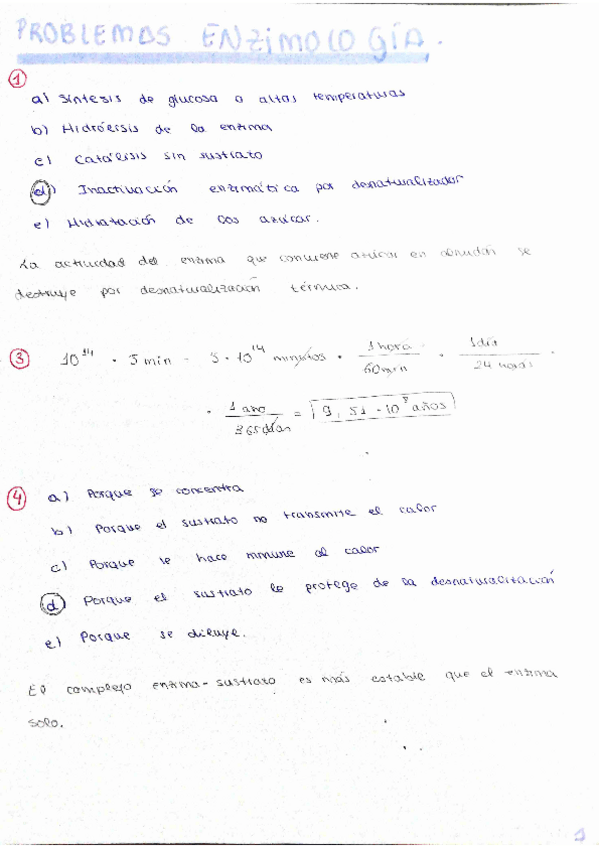 PROBLEMAS ENZIMOLOGÍA.
1
a) Síntesis de glucosa a altas temperaturas
b) Hidrólisis de la enzima
c) Catálisis sin sustrato
d) Inactivación enzimática por desnaturalizador
e) Hidratación de los azúcar.
La actividad del enzima que convierte azúcar en almidón se
destruye por desnaturalización térmica.
3 10^14 · 5 min = 5 · 10^14 minutos · 1 hora / 60 min · 1 día / 24 horas ·
· 1 año / 365 días = 9,51 · 10^8 años
4 a) Porque se concentra
b) Porque el sustrato no transmite el calor
c) Porque se hace inmune al calor
d) Porque el sustrato le protege de la desnaturalización
e) Porque se diluye.
El complejo enzima-sustrato es más estable que el enzima
solo.
1